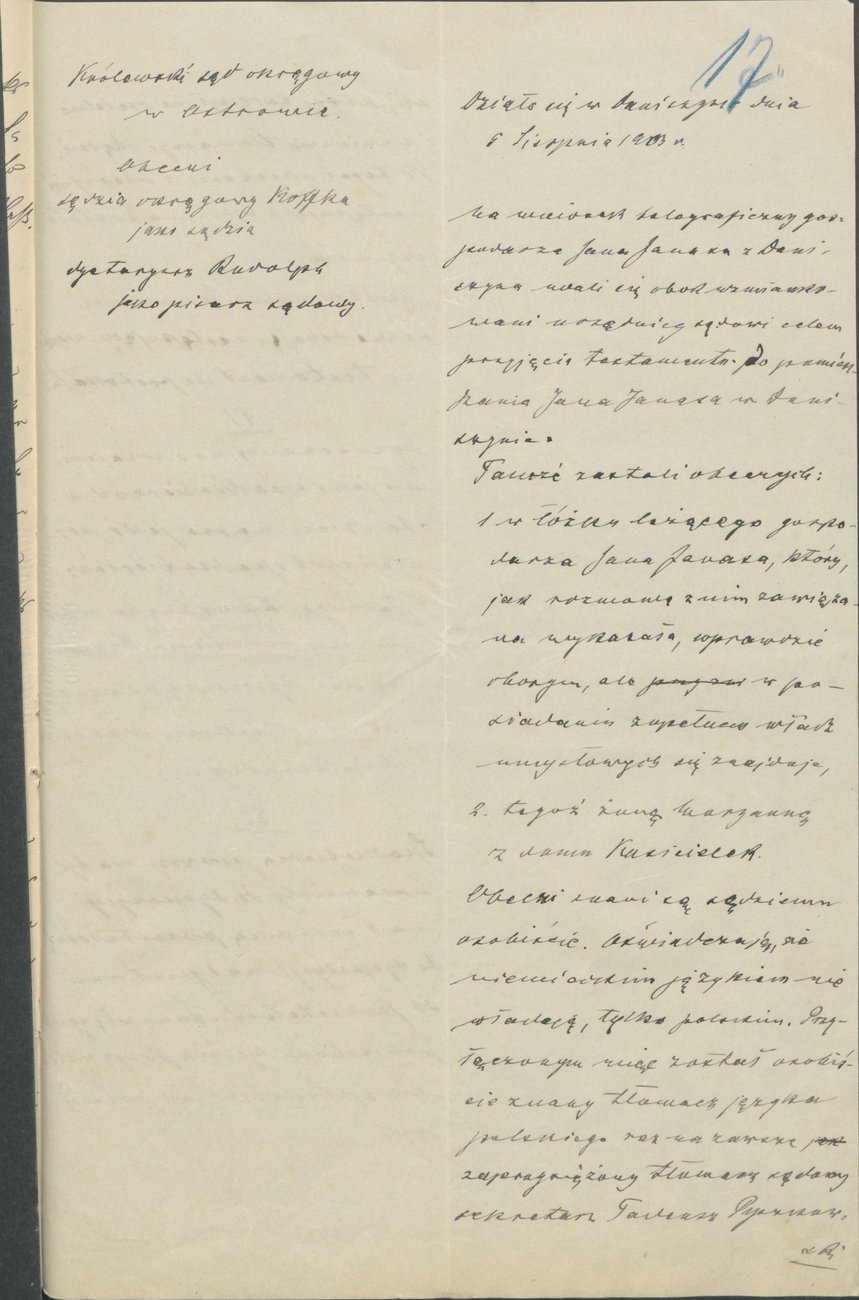 17
Królewski sąd okręgowy
w Ostrowie.
Obecni
sędzia okręgowy Koffka
jako sędzia
dyetaryusz Rudolph
jako pisarz sądowy.
Działo się w Daniszynie dnia
5 Sierpnia 1903 r.
Na wniosek telegraficzny gos-
podarza Jana Janasa z Dani-
szyna udali się obok wzmianko-
wani urzędnicy sądowi celem
przyjęcia testamentu do pomiesz-
kania Jana Janasa w Dani-
szynie.
Tamże zastali obecnych:
1 w łóżku leżącego gospo-
darza Jana Janasa, który,
jak rozmowa z nim zawiąza-
na wykazała, wprawdzie
chorym, ale w po-
siadaniu zupełnem władz
umysłowych się znajduje,
2. tegoż żonę Maryannę
z domu Kościelek.
Obecni znani są sędziemu
osobiście. Oświadczają, że
niemieckim językiem nie
władają, tylko polskim. Przy-
łączonym więc został osobiś-
cie znany tłomacz języka
polskiego raz na zawsze
zaprzysiężony tłomacz sądowy
sekretarz Tadeusz
ski